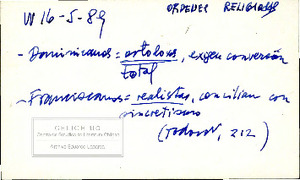 W 16-5-89
ORDENES RELIGIOSAS
- Dominicanos = ortodoxos, exigen conversión
total
- Franciscanos = realistas, concilian con
sincretismo
(Todorov, 212)
CELICH UC
Archivo Eduardo